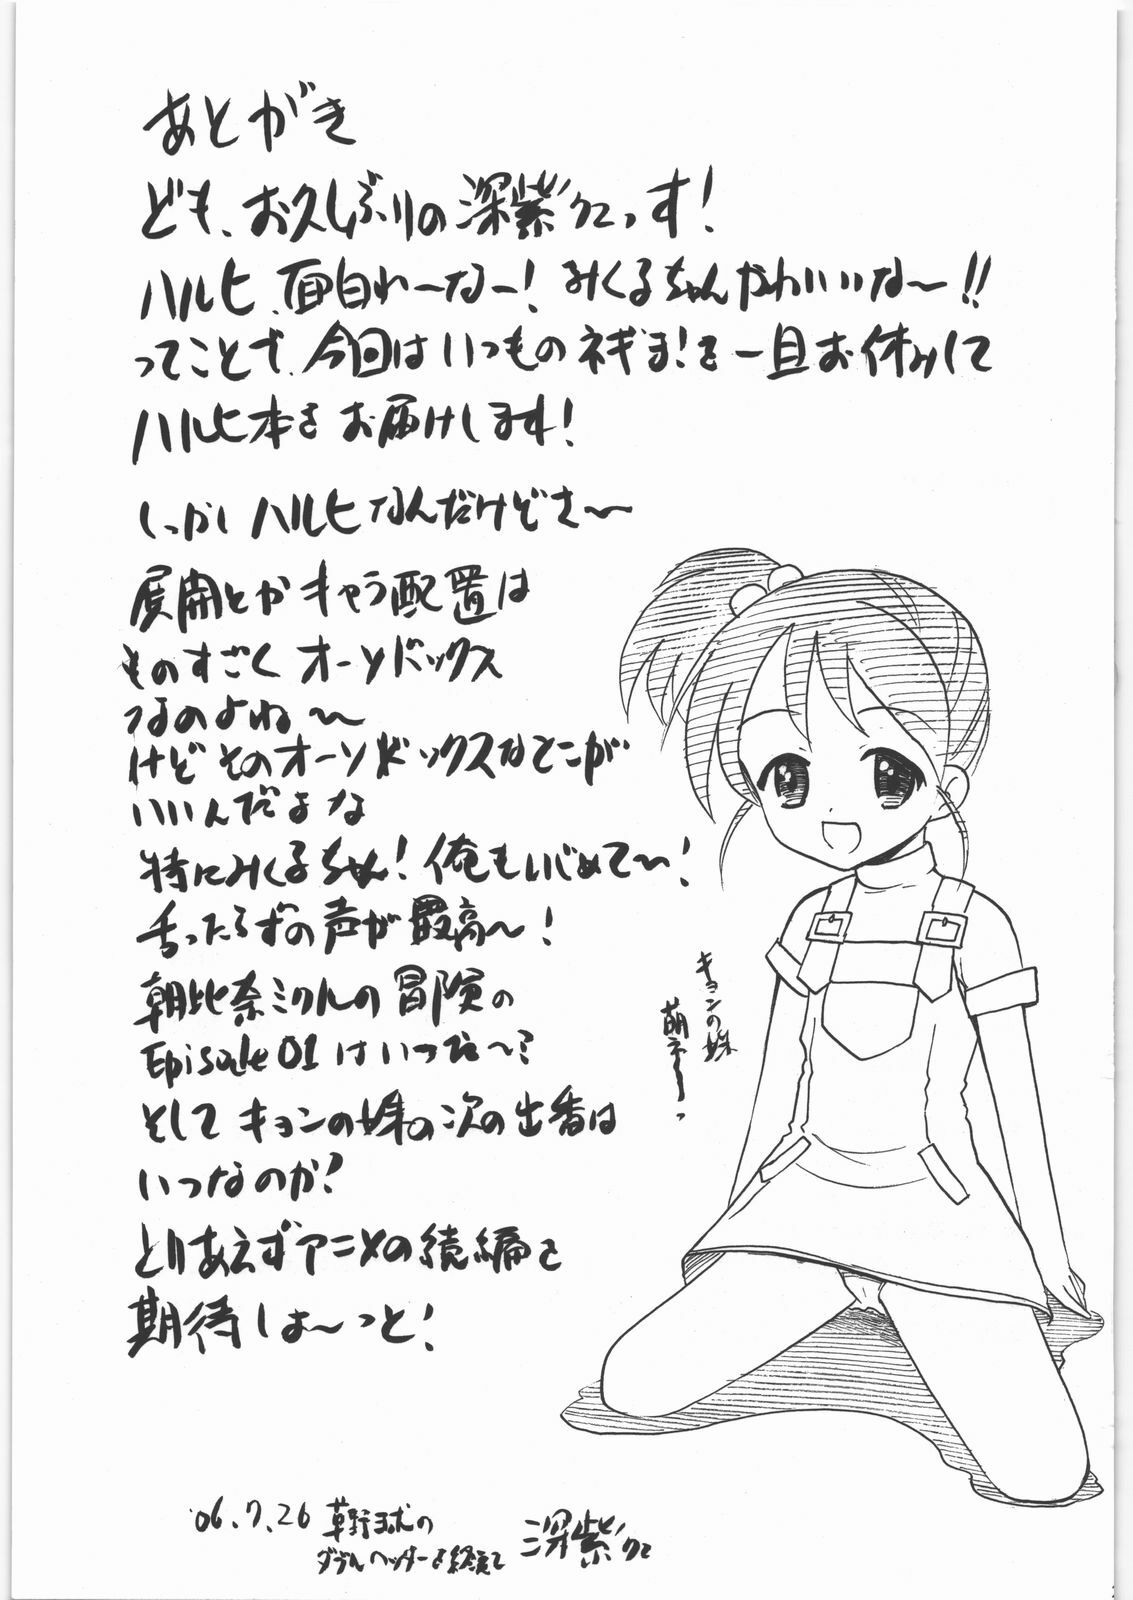 あとがき
ども、お久しぶりの深紫でっす!
ハルヒ、面白れーなー! みくるちゃんかわいいな〜!!
ってことで、今回はいつものネギま!を一旦お休みして
ハルヒ本をお届けします!
しっかしハルヒなんだけどさ〜
展開とかキャラ配置は
ものすごくオーソドックス
なのよね〜
けどそのオーソドックスなとこが
いいんだよな
特にみくるちゃん! 俺もいじめて〜!
舌ったらずの声が最高〜!
朝比奈ミクルの冒険の
Episode 01 はいつだ〜?
そしてキョンの妹の次の出番は
いつなのか?
とりあえずアニメの続編を
期待しま〜っと!
キョンの妹
萌え〜っ
'06.7.26 草野球の
ダブルヘッダーを経て 深紫